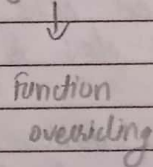 Function
overriding